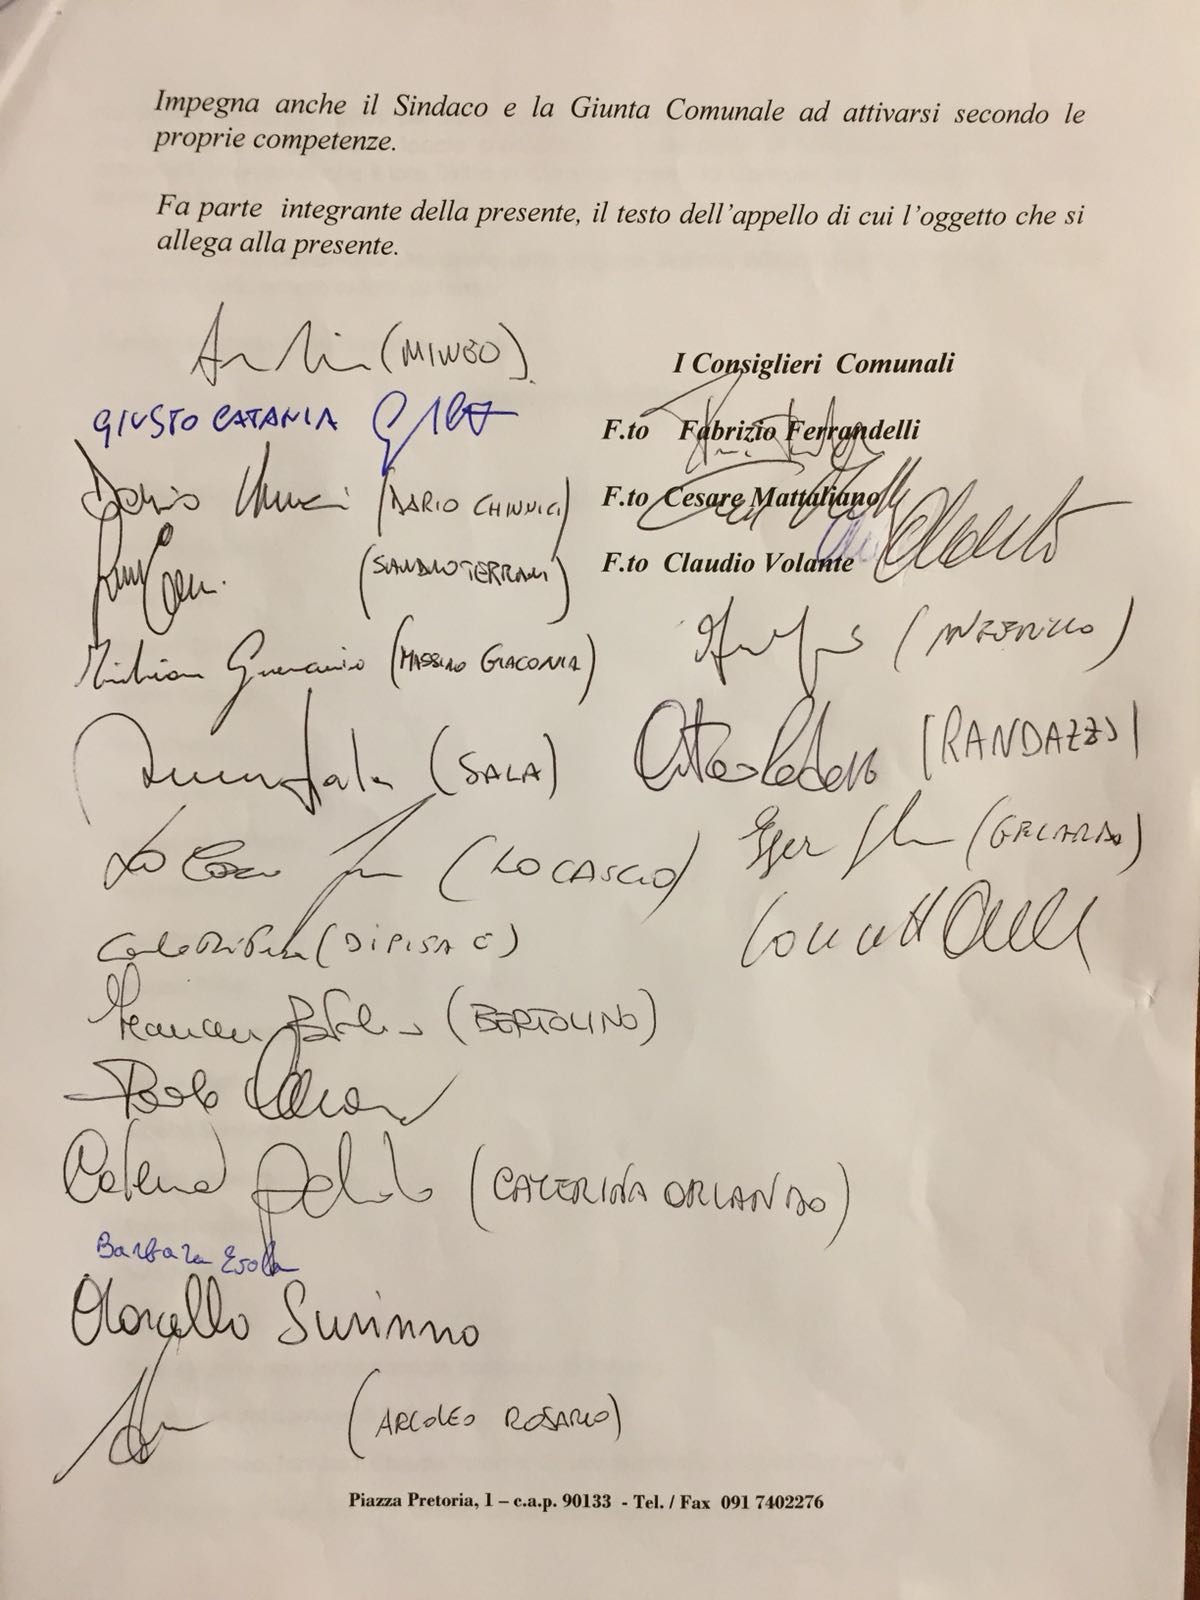 Impegna anche il Sindaco e la Giunta Comunale ad attivarsi secondo le
proprie competenze.
Fa parte integrante della presente, il testo dell'appello di cui l'oggetto che si
allega alla presente.
(MINEO)
I Consiglieri Comunali
GIUSTO CATANIA
F.to Fabrizio Ferrandelli
Dario Chinnici (DARIO CHINNICI)
F.to Cesare Mattaliano
(SANDRO TERRANI)
F.to Claudio Volante
(INZERILLO)
(MASSIMO GIACONIA)
(SALA)
[RANDAZZO]
(GELARDA)
Lo Cascio (LO CASCIO)
(DI PISA C)
(BERTOLINO)
Caterina Orlando (CATERINA ORLANDO)
Barbara Evola
Marcello Susinno
(ARCOLEO ROSARIO)
Piazza Pretoria, 1 – c.a.p. 90133 - Tel. / Fax 091 7402276